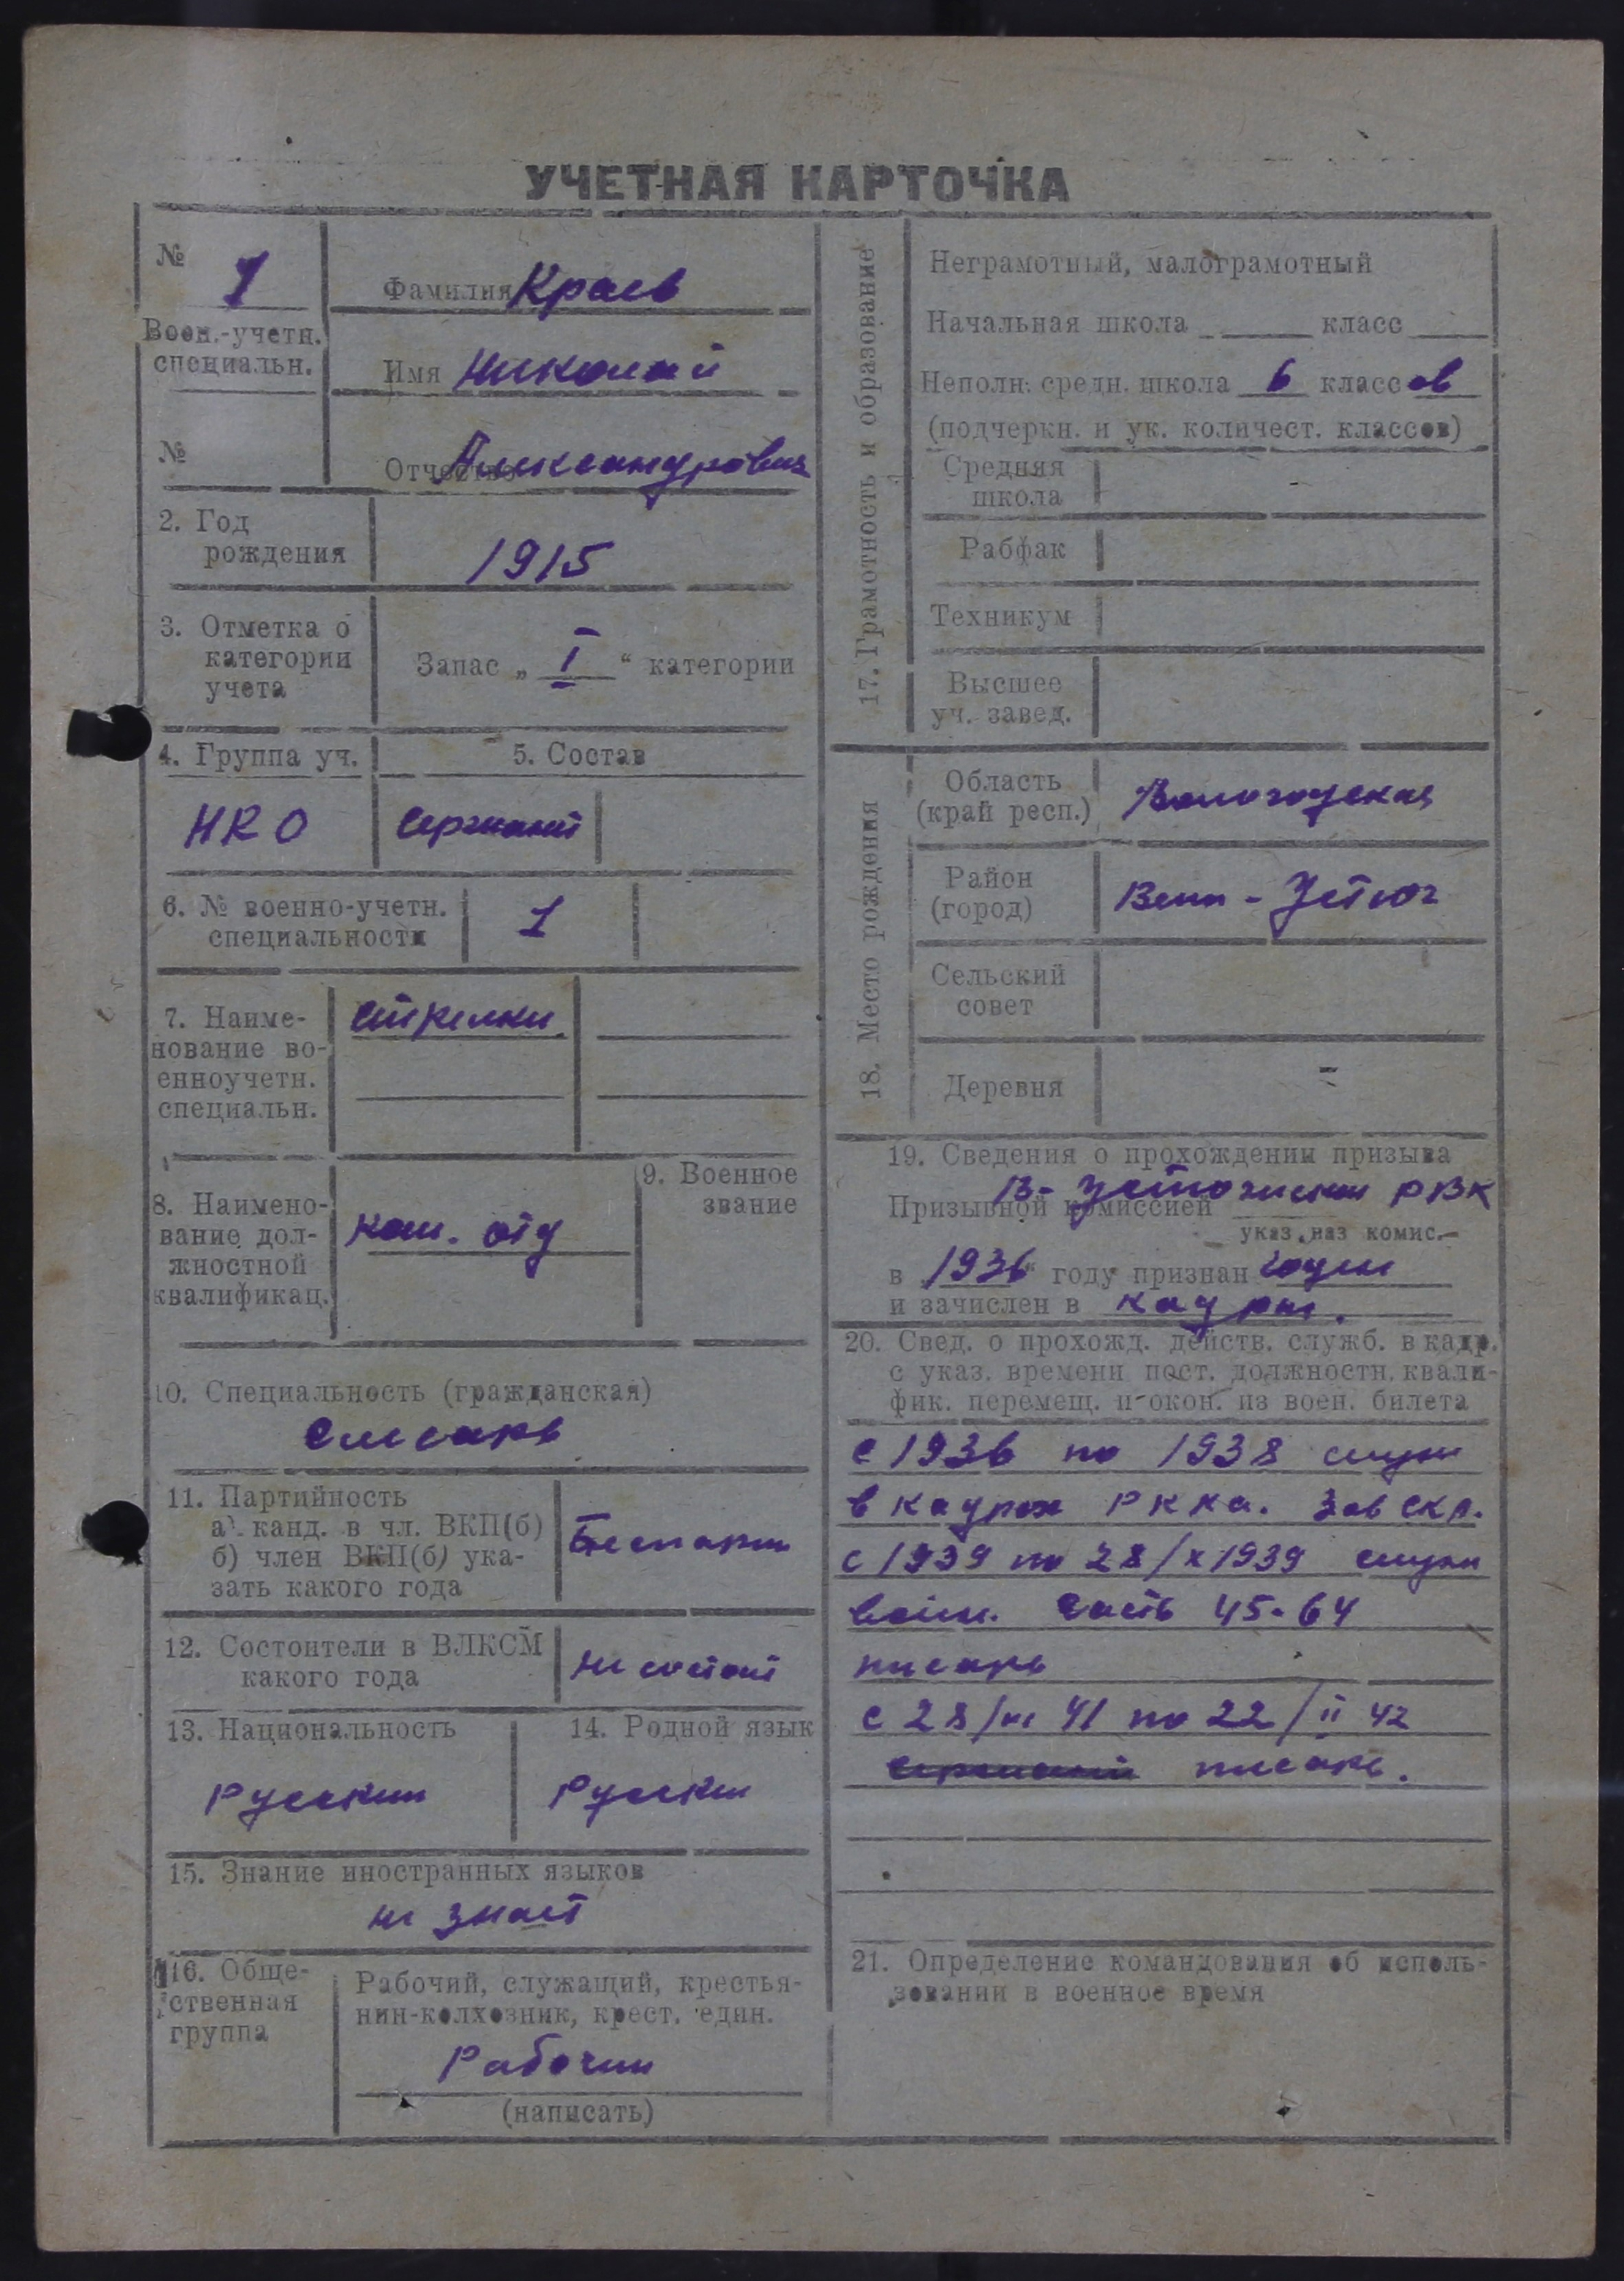 УЧЕТНАЯ КАРТОЧКА
№ 1
Воен.-учетн.
специальн.
№
Фамилия Краев
Имя Николай
Отчество Александрович
2. Год
рождения
1915
3. Отметка о
категории
учета
Запас „ I “ категории
4. Группа уч.
5. Состав
НКО
Сержант
6. № военно-учетн.
специальности
1
7. Наиме-
нование во-
енноучетн.
специальн.
стрелки
8. Наимено-
вание дол-
жностной
квалификац.
ком. отд
9. Военное
звание
10. Специальность (гражданская)
Слесарь
11. Партийность
а) канд. в чл. ВКП(б)
б) член ВКП(б) ука-
зать какого года
Беспарти
12. Состоители в ВЛКСМ
какого года
не состоит
13. Национальность
Русский
14. Родной язык
Русский
15. Знание иностранных языков
не знает
16. Обще-
ственная
группа
Рабочий, служащий, крестья-
нин-колхозник, крест. един.
Рабочий
(написать)
17. Грамотность и образование
Неграмотный, малограмотный
Начальная школа класс
Неполн. средн. школа 6 классов
(подчеркн. и ук. количест. классов)
Средняя
школа
-
Рабфак
Техникум
Высшее
уч. завед.
18. Место рождения
Область
(край респ.)
Вологодская
Район
(город)
Вели-Устюг
Сельский
совет
Деревня
-
19. Сведения о прохождении призыва
Призывной комиссией В-Устюжским РВК
указ. наз комис.
в 1936 году признан годен
и зачислен в кадры.
20. Свед. о прохожд. действ. служб. в кадр.
с указ. времени пост. должностн. квали-
фик. перемещ. и окон. из воен. билета
с 1936 по 1938 служ
в кадрах РККа. Зав скл.
с 1939 по 28/X 1939 служи
воин. часть 45-64
писарь
с 28/VI 41 по 22/II 42
писарь.
21. Определение командования об исполь-
зовании в военное время